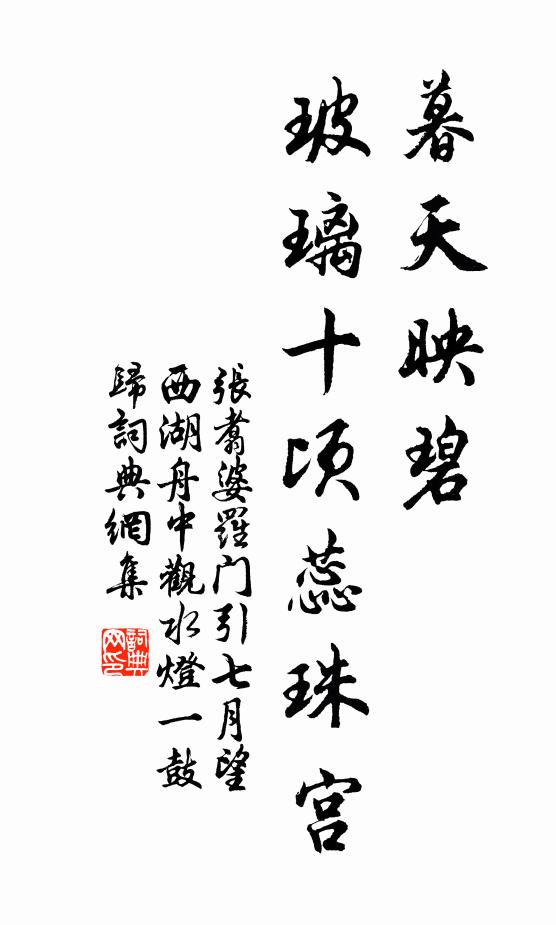 暮天映碧
玻璃十顷蕊珠宮
張翥婆羅门引七月望
西湖舟中觀水燈一鼓
歸詞典網集
詞典
网印